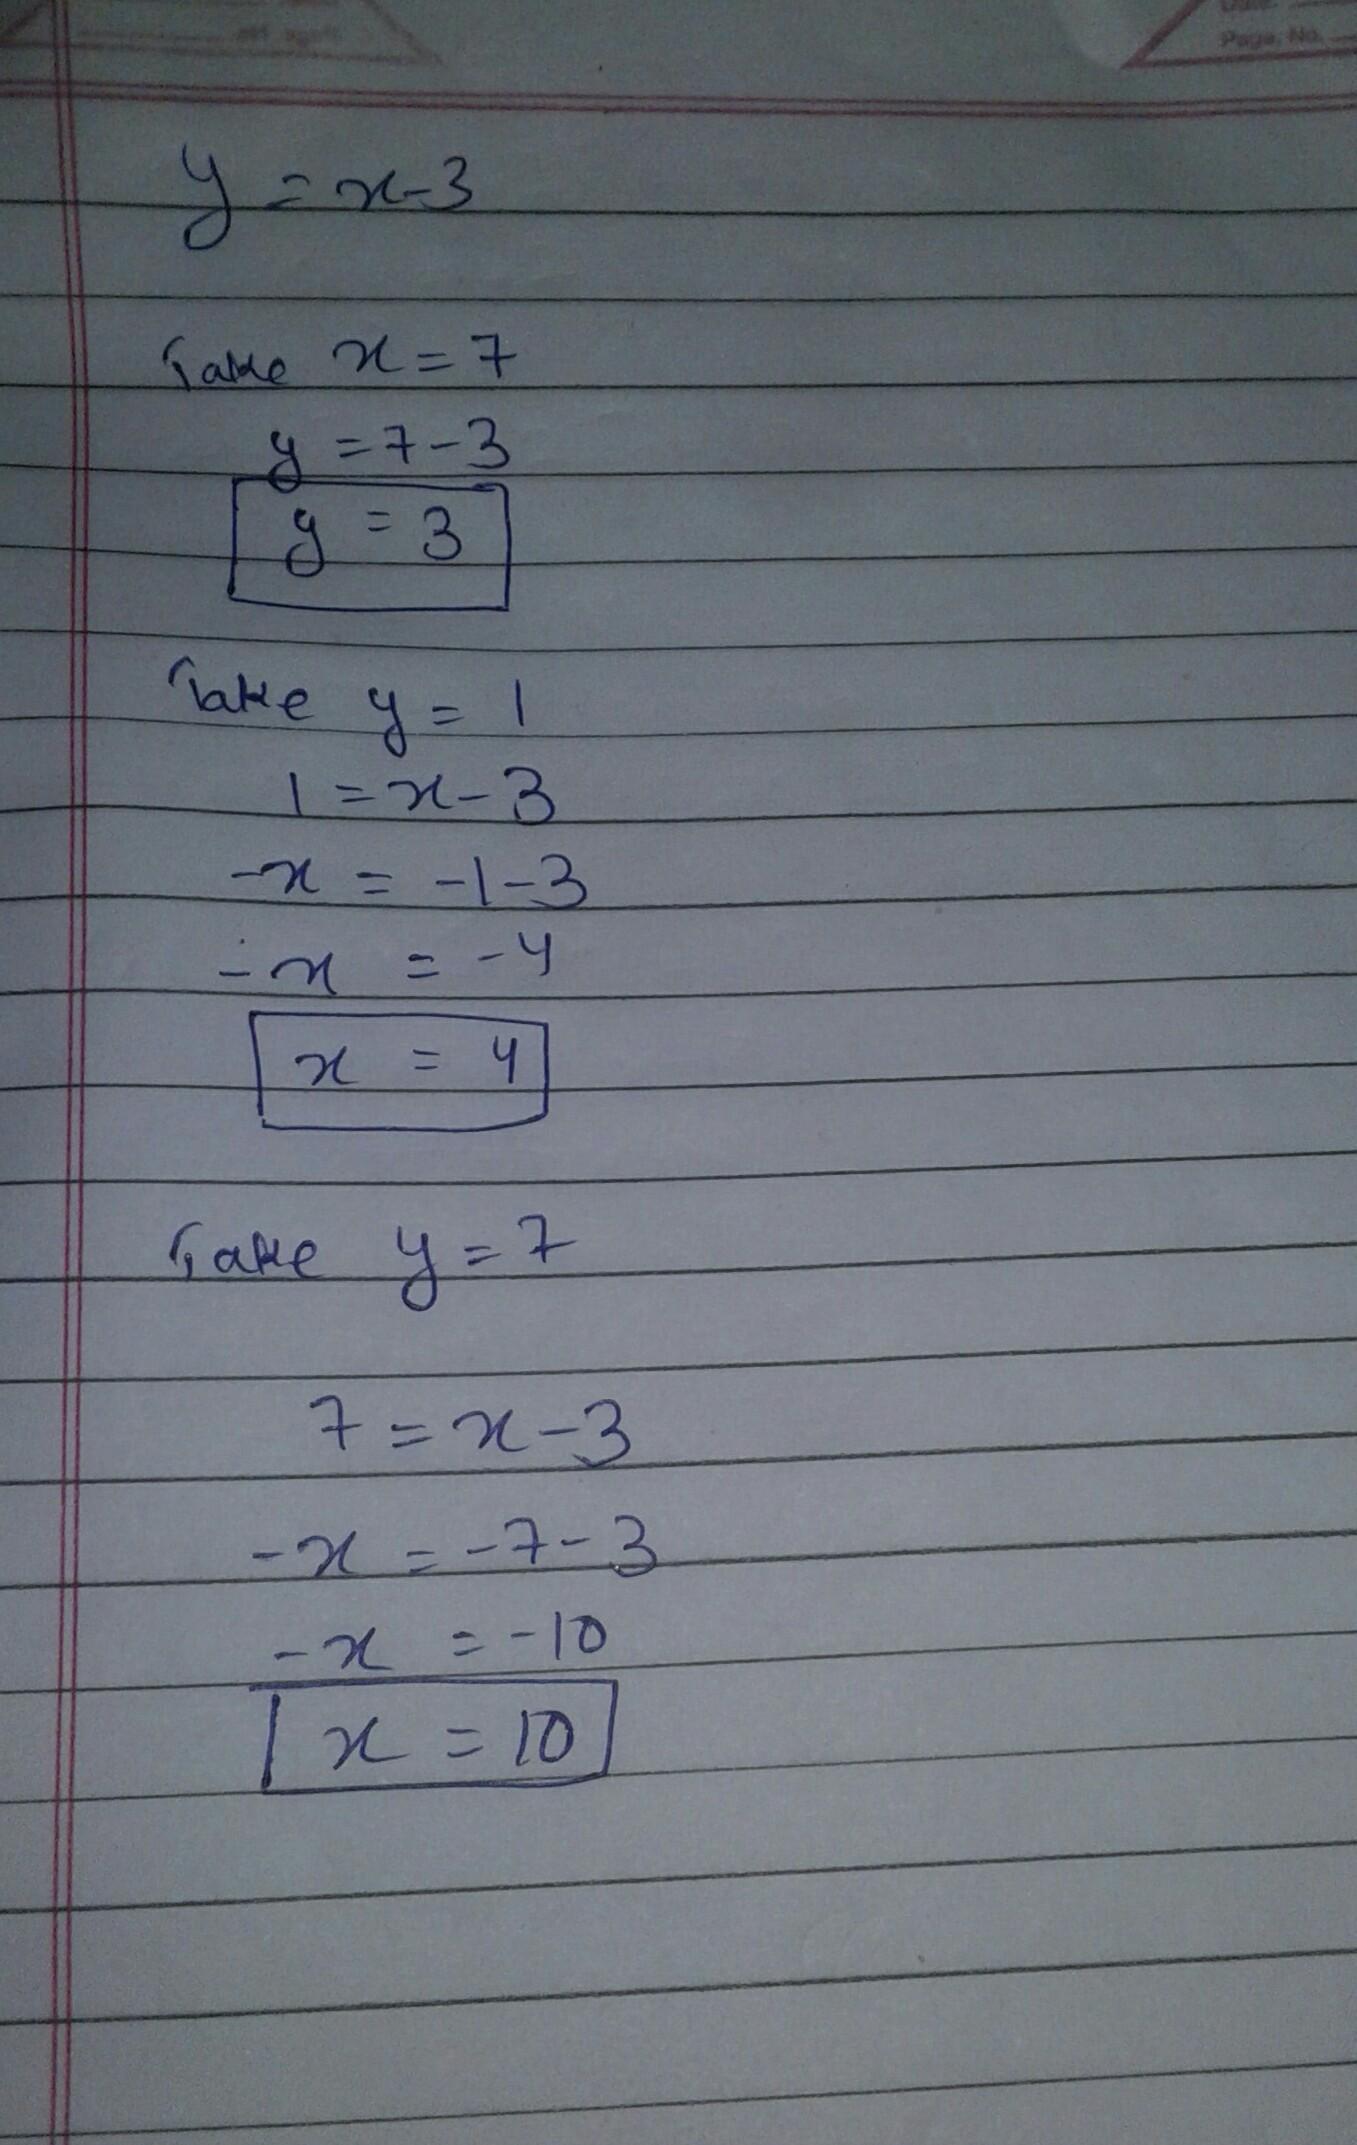 Page. No.
y = x-3
Take x = 7
y = 7-3
y = 3
Take y = 1
1 = x-3
-x = -1-3
-x = -4
x = 4
Take y = 7
7 = x-3
-x = -7-3
-x = -10
x = 10